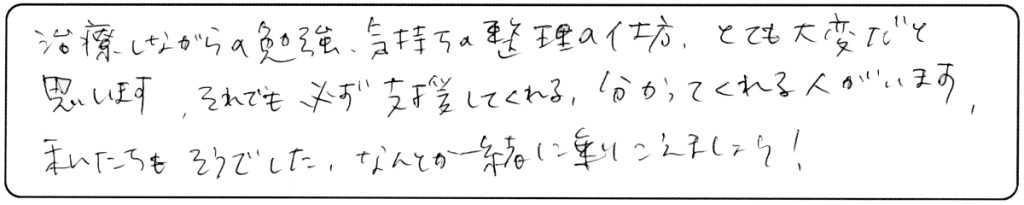 治療しながらの勉強、気持ちの整理の仕方、とても大変だと
思います、それでも必ず支援してくれる、分かってくれる人がいます、
私たちもそうでした、なんとか一緒に乗りこえましょう！